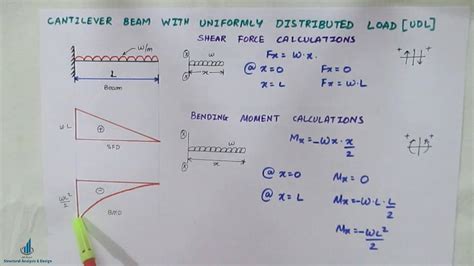 CANTILEVER BEAM WITH UNIFORMLY DISTRIBUTED LOAD [UDL]
SHEAR FORCE CALCULATIONS
w/m
L
Beam
w
x
Fx = w·x.
@ x=0 Fx=0
x=L Fx=w·L
w·L
+
SFD
BENDING MOMENT CALCULATIONS
w
x
Mx=-wx·x/2
@ x=0 Mx = 0
@ x=L Mx=-w·L·L/2
Mx=-wL²/2
wL²/2
-
BMD
Structural Analysis & Design